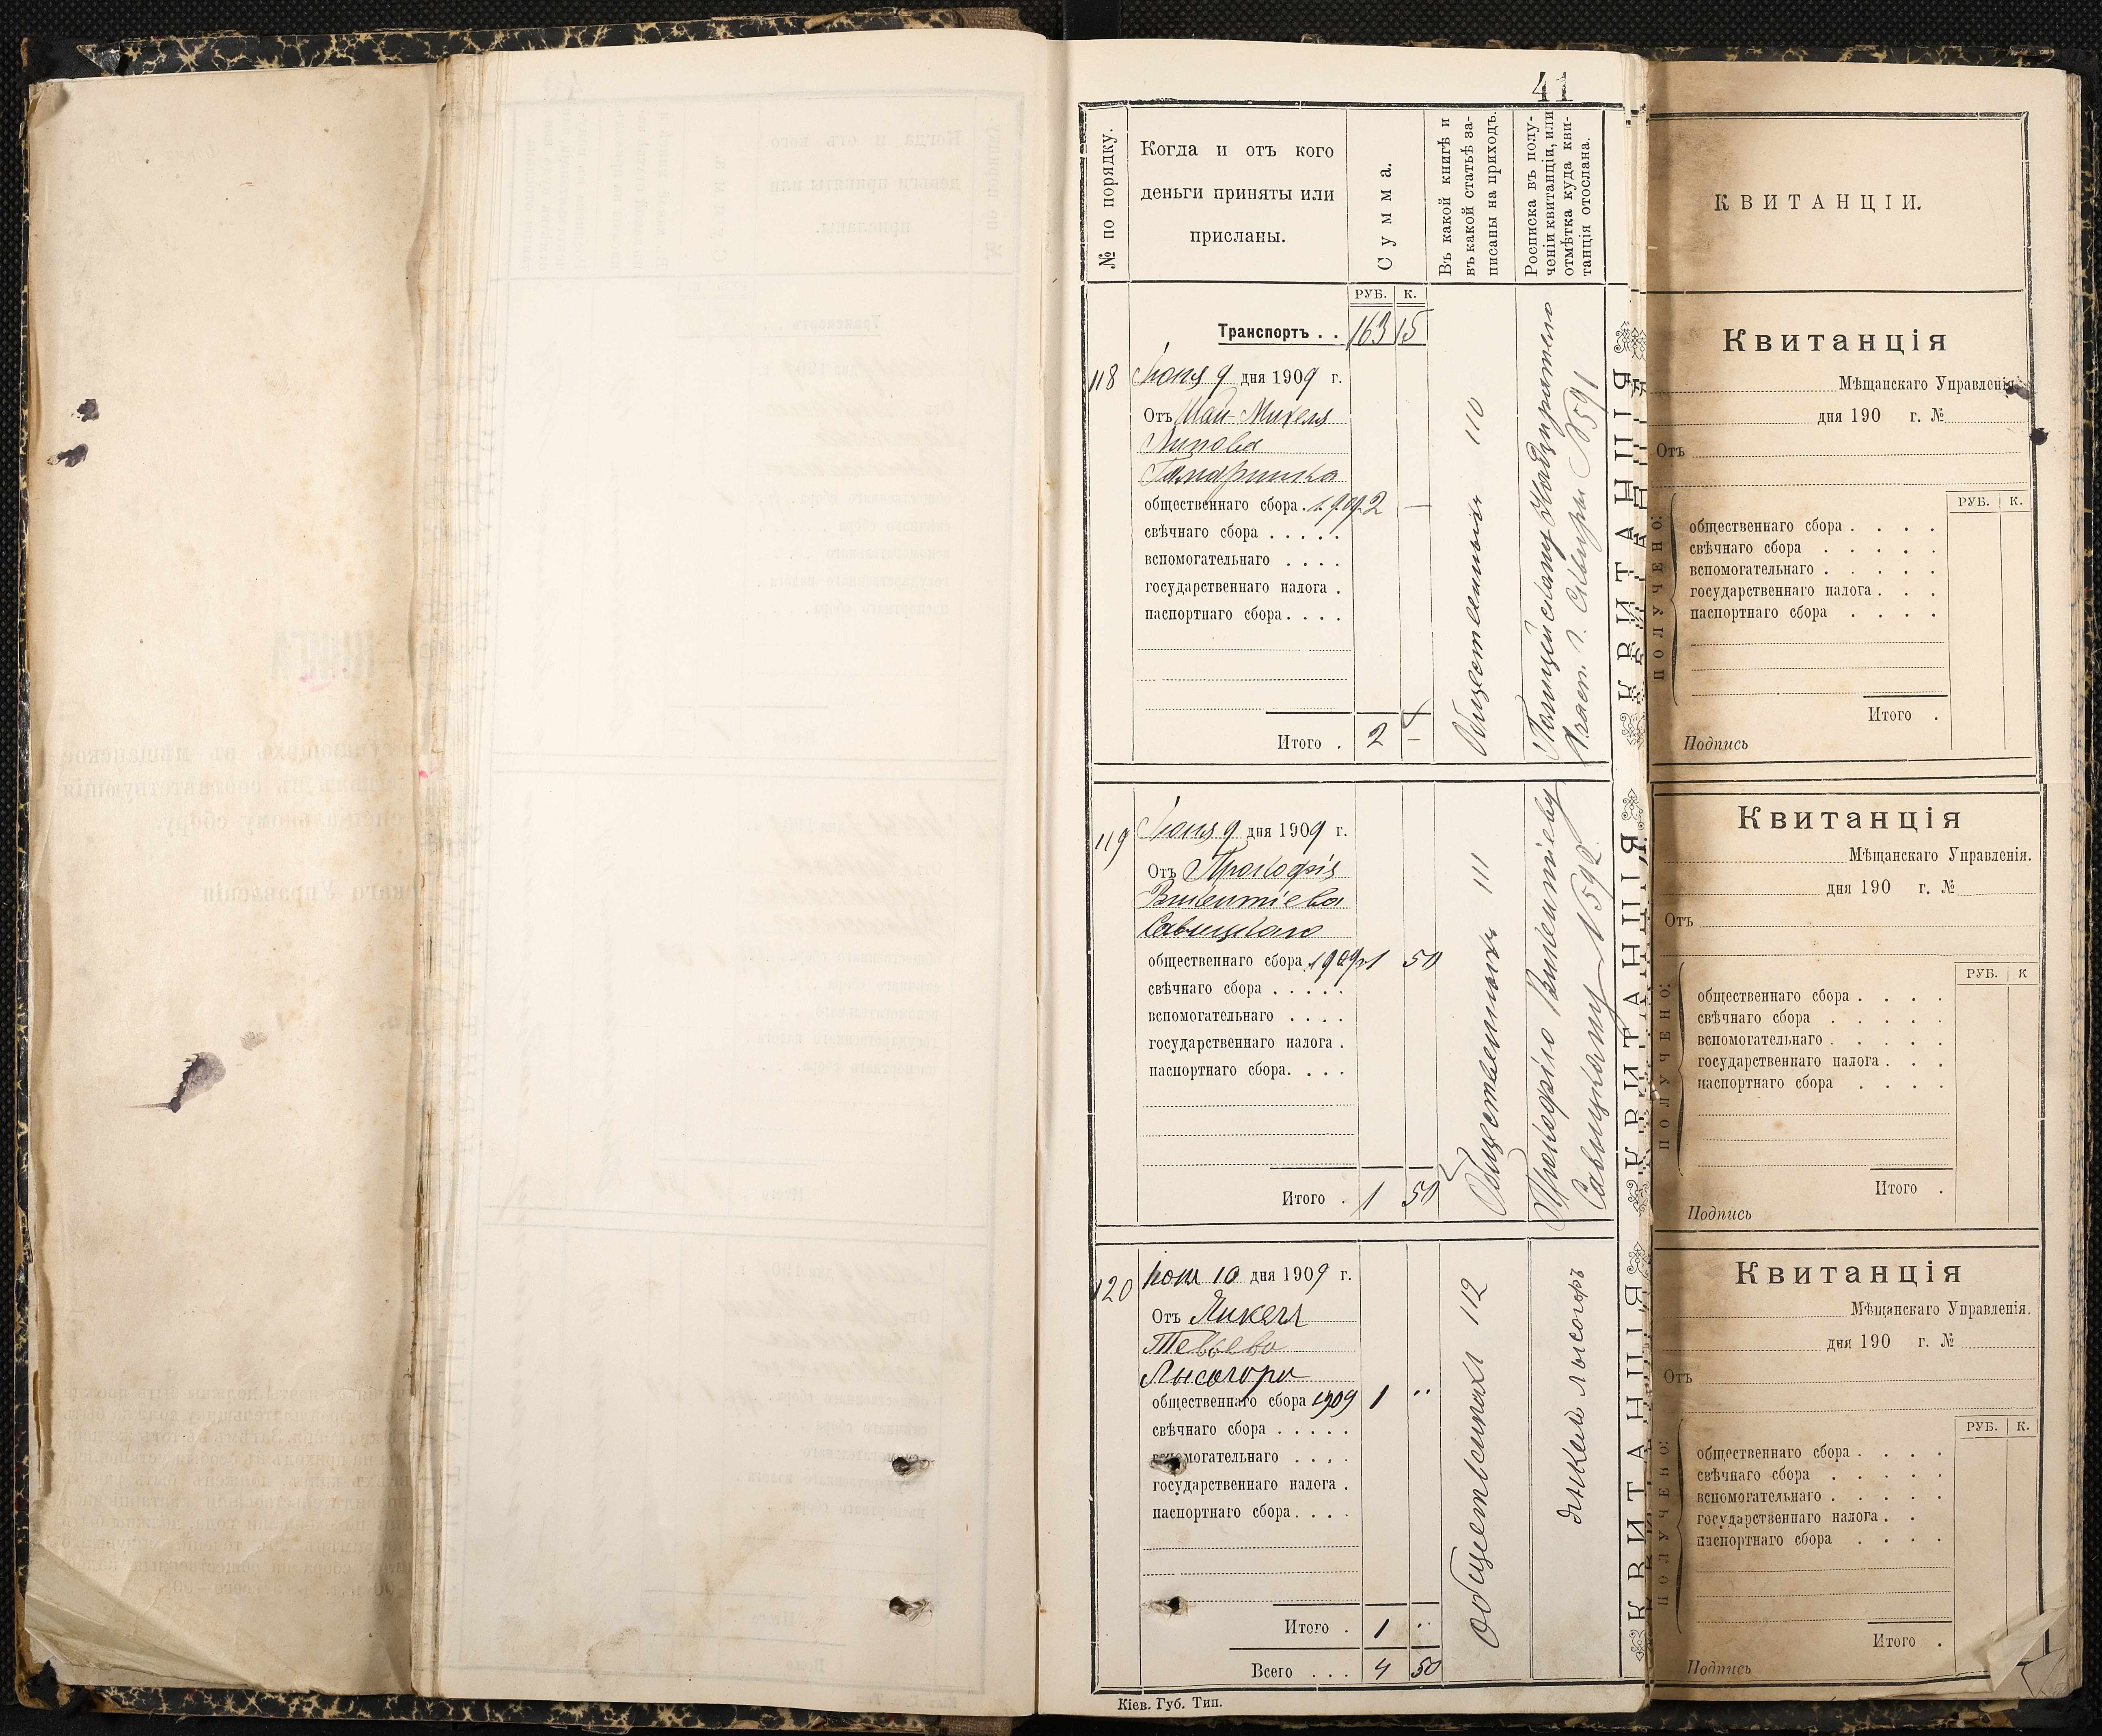 41
№ по порядку.
Когда и отъ кого
деньги приняты или
присланы.
Сумма.
Въ какой книгѣ и
въ какой статьѣ за-
писаны на приходъ.
Росписка въ полу-
ченіи квитанціи, или
отмѣтка куда кви-
танція отослана.
РУБ. К.
Транспортъ . . 163 15
118 Іюня 9 дня 1909 г.
Отъ Шаи-Михеля
Липова
общественнаго сбора . 1909 2 —
свѣчнаго сбора . . . . .
вспомогательнаго . . . .
государственнаго налога .
паспортнаго сбора . . . .
Итого . 2 —
Общественныхъ 110
Полицейскому Надзирателю
№ 591
КВИТАНЦІЯ
119 Іюня 9 дня 1909 г.
Отъ Прокофія
Викентіева
Савицкаго
общественнаго сбора . 1909 1 50
свѣчнаго сбора . . . . .
вспомогательнаго . . . .
государственнаго налога .
паспортнаго сбора . . . .
Итого . 1 50
Общественныхъ 111
Прокофію Викентіеву
Савицкому № 592
КВИТАНЦІЯ
120 Іюня 10 дня 1909 г.
Отъ Янкеля
Тевьева
Лысогора
общественнаго сбора 1909 1 "
свѣчнаго сбора . . . . .
вспомогательнаго . . . .
государственнаго налога .
паспортнаго сбора . . . .
Итого . 1 "
Всего . . . 4 50
общественныхъ 112
Янкель Лысогоръ
КВИТАНЦІЯ
Кіев. Губ. Тип.
КВИТАНЦІИ.
Квитанція
Мѣщанскаго Управленія.
дня 190 г. №
Отъ
ПОЛУЧЕНО:
РУБ. К.
общественнаго сбора . . . .
свѣчнаго сбора . . . . .
вспомогательнаго . . . . .
государственнаго налога . . .
паспортнаго сбора . . . .
Итого .
Подпись
Квитанція
Мѣщанскаго Управленія.
дня 190 г. №
Отъ
ПОЛУЧЕНО:
РУБ. К
общественнаго сбора . . . .
свѣчнаго сбора . . . . .
вспомогательнаго . . . . .
государственнаго налога . . .
паспортнаго сбора . . . .
Итого .
Подпись
Квитанція
Мѣщанскаго Управленія.
дня 190 г. №
Отъ
ПОЛУЧЕНО:
РУБ. К.
общественнаго сбора . . . .
свѣчнаго сбора . . . . .
вспомогательнаго . . . . .
государственнаго налога . .
паспортнаго сбора . . . .
Итого .
Подпись